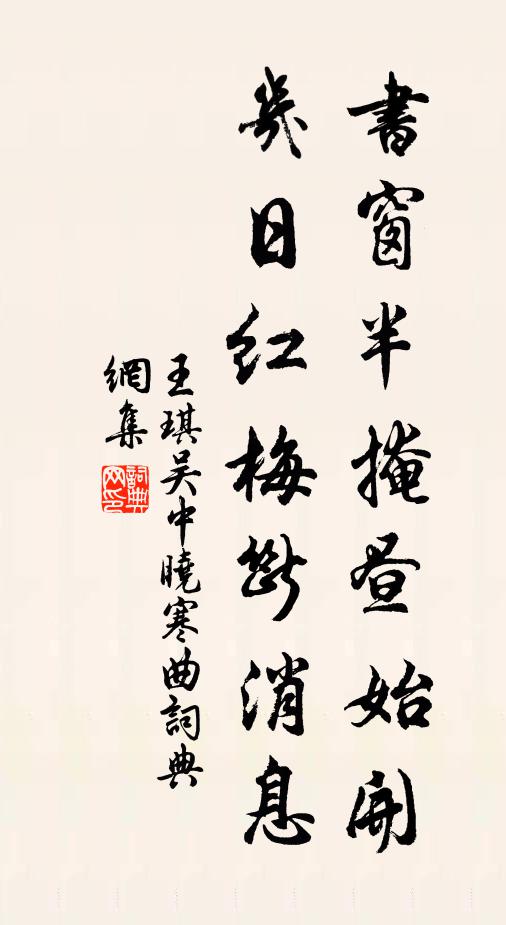 書窗半掩晝始開
幾日紅梅斷消息
王琪吴中曉寒曲詞典
網集
詞典
网印